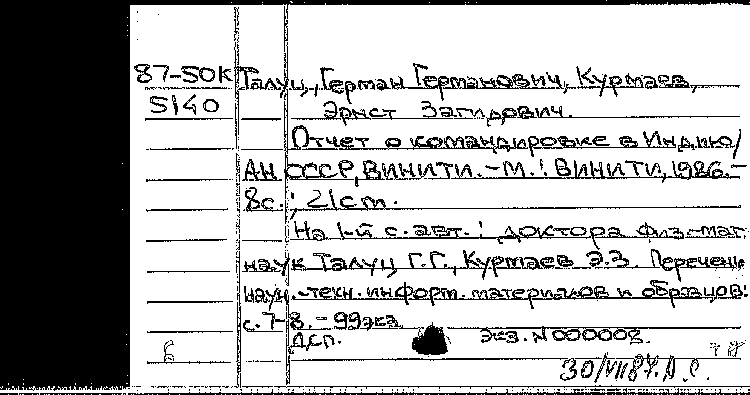 87-50К Талуц, Герман Германович, Курмаев,
5140 Эрнст Загидович.
Отчет о командировке в Индию/
АН СССР, ВИНИТИ. - М.: ВИНИТИ, 1986. -
8с.; 21см.
На 1-й с. авт.: доктора физ-мат
наук Талуц Г.Г., Курмаев Э.З. Перечень
научн.-техн. информ. материалов и образцов:
с. 7-8. - 99экз
ДСП. экз. N000008.
30/VII87. А.С.